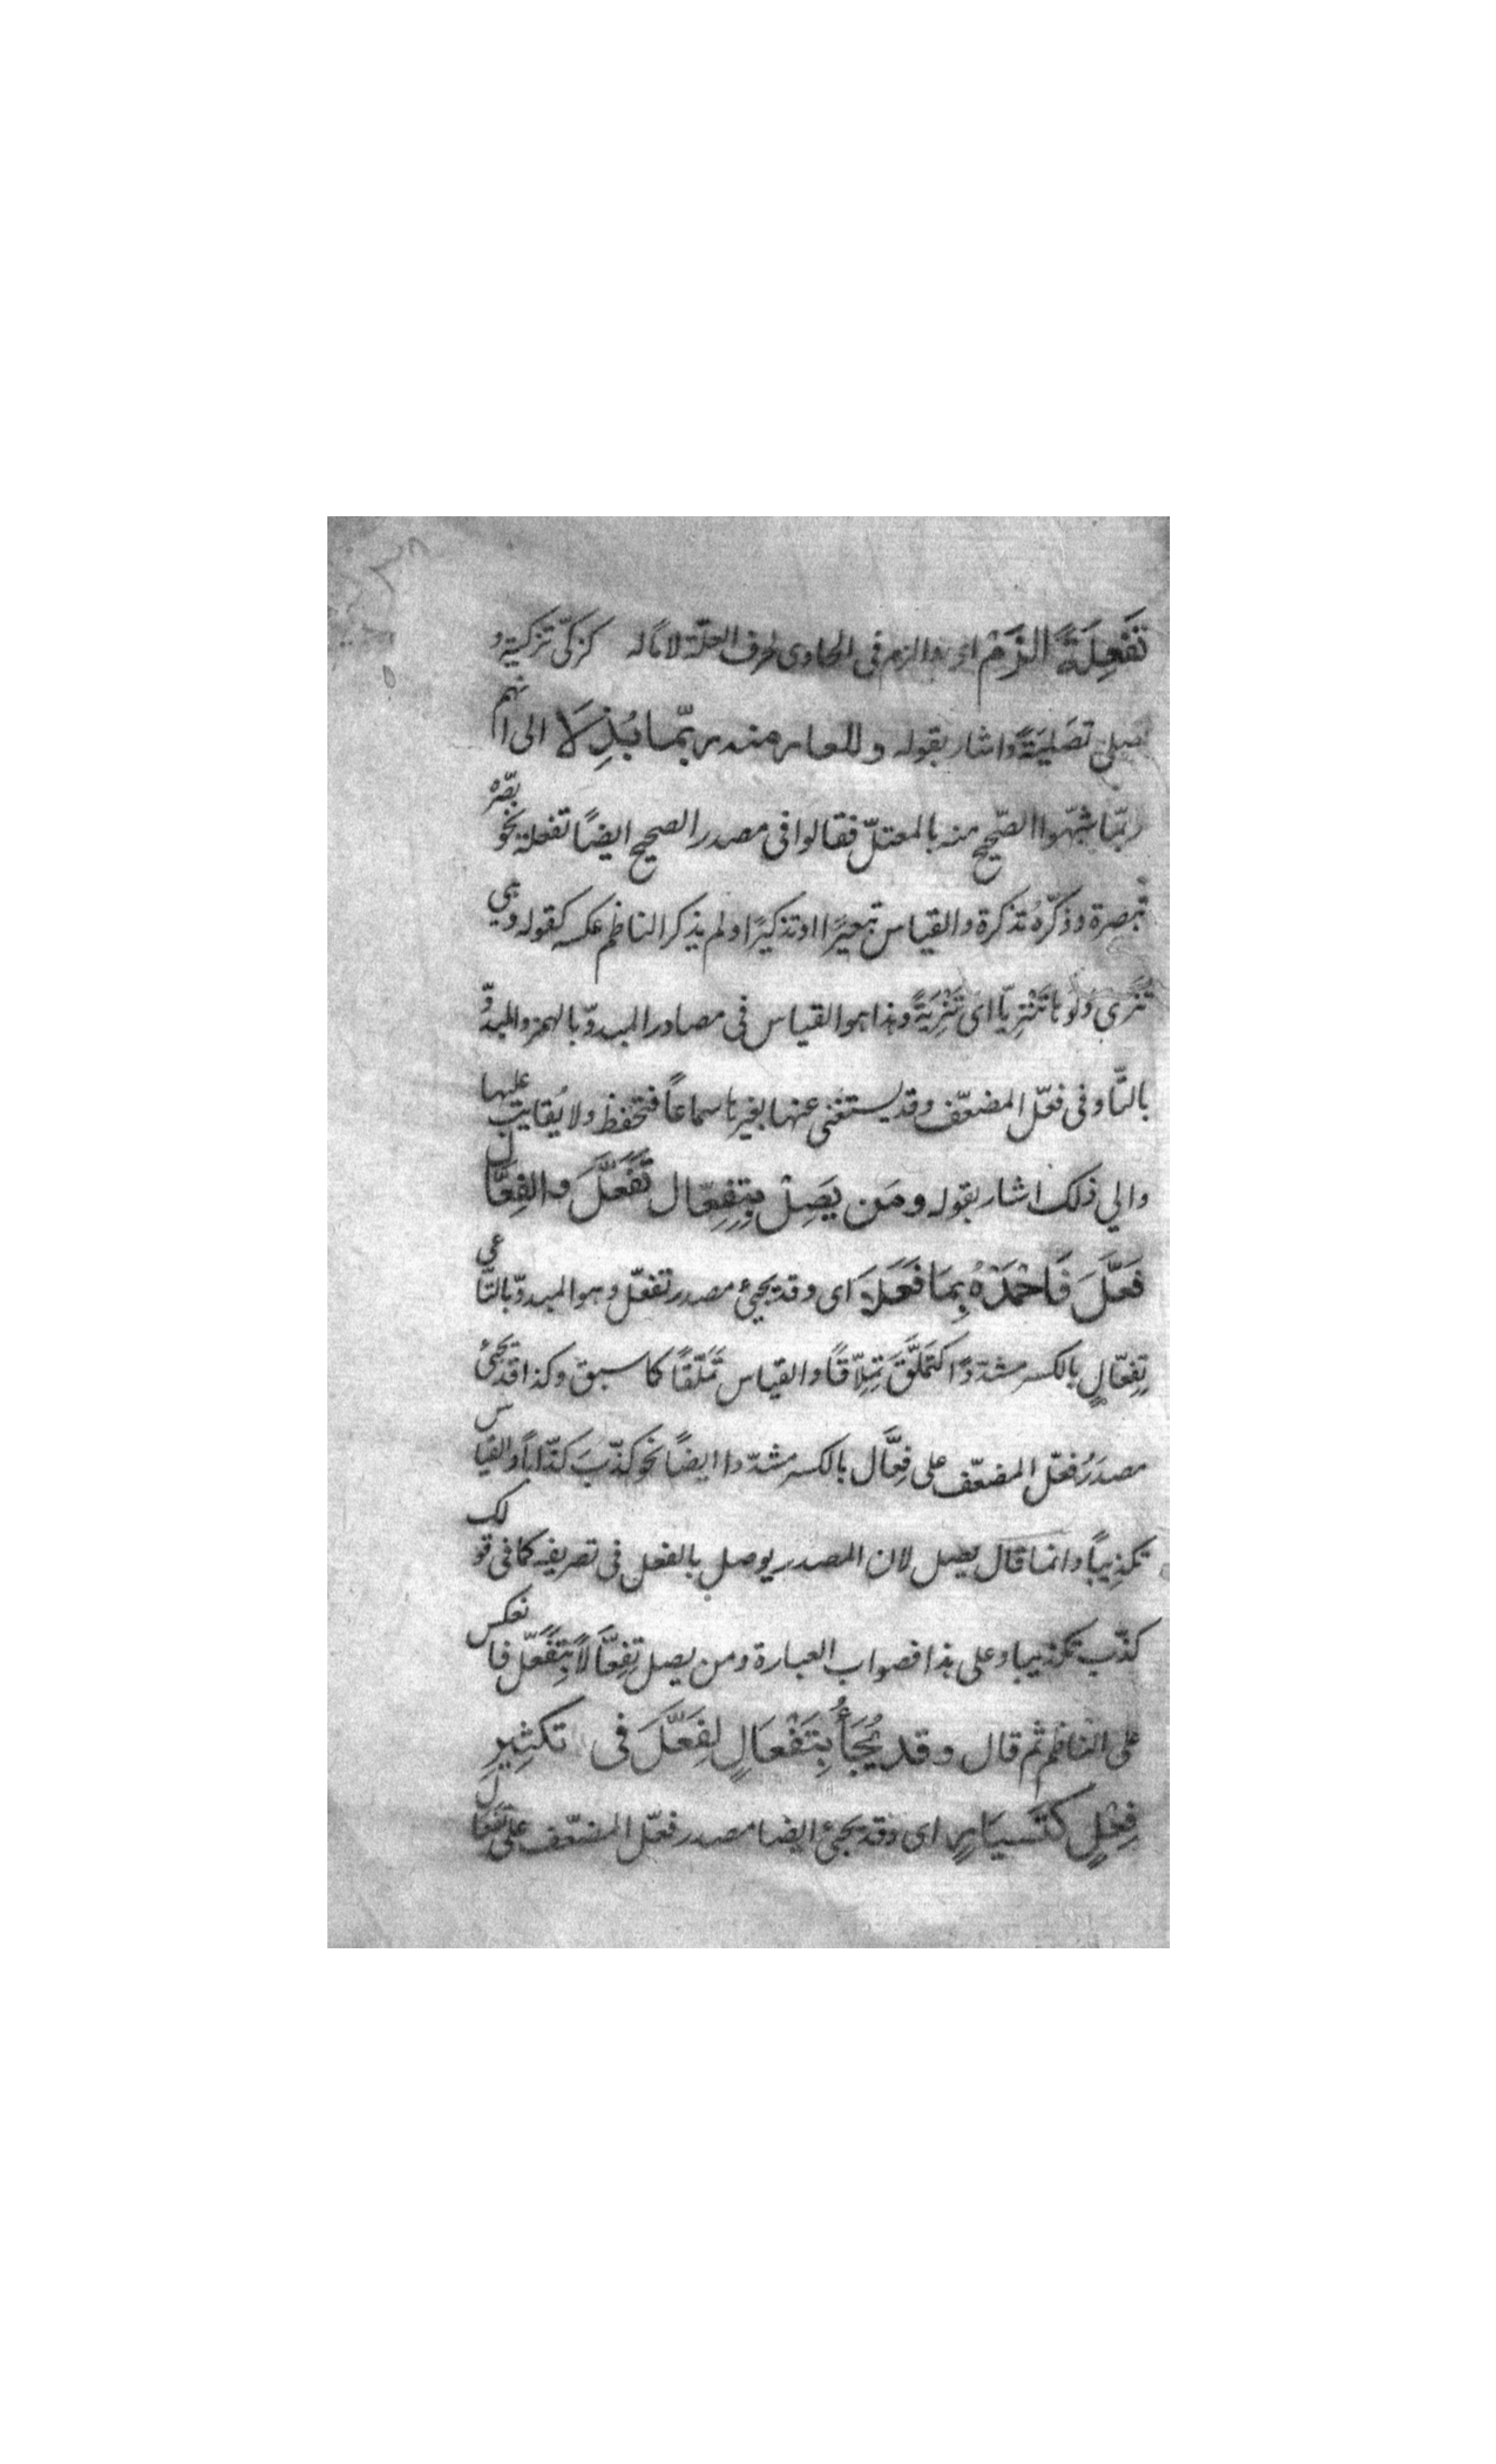 تَفْعِلَةً الزَمْ الزم فى الحاوى لحرف العلّة لاما له كزكّى تزكية و
صلى تصَليَةً واشار بقوله وللعار منه ربّما بُذِلَا الى انهم
ربّما شبّهوا الصّحيح منه بالمعتلّ فقالوا فى مصدر الصحيح ايضًا تفعلة نحو بصّره
تبصرة وذكّره تذكرة والقياس تبصيرًا او تذكيرًا ولم يذكر الناظم عكسه كقوله وهى
تُنَزّى دلوها تَنْزِيّا اى تَنْزِيَةً وهذا هو القياس فى مصادر المبدوّ بالهمز والمبدوّ
بالتّا وفى فعّل المضعّف وقد يستغنى عنها بغيرها سماعاً فتحفظ ولا يُقاس عليها
والى ذلك اشار بقوله ومَن يَصِلْ بِتِفِعّال تَفَعَّلَ والفِعَّال
فَعَّلَ فَاحْمَدْهُ بِمَا فَعَلَا اى وقد يجيئ مصدر تفعّل وهو المبدوّ بالتّا على
تِفِعّالٍ بالكسر مشدّدًا كتَمَلَّقَ تِمِلّاقًا والقياس تَمَلّقًا كما سبق وكذا قد يجيئ
مصدَرُ فعّل المضعّف على فِعَّال بالكسر مشدّدا ايضًا نحو كذّبَ كذّاباً والقياس
تكذِيبًا وانما قال يصل لان المصدر يوصل بالفعل فى تصريفه كما فى قولك
كذّب تكذيبا وعلى هذا فصواب العبارة ومن يصل تِفِعَّالًا بِتَفَعّل فانعكس
على الناظم ثم قال وقد يُجَأُ بِتَفْعَالٍ لِفَعَّلَ فى تكثِيرِ
فِعْلٍ كتَسيَارٍ اى وقد يجيئ ايضا مصدر فعّل المضعّف على تَفعَال